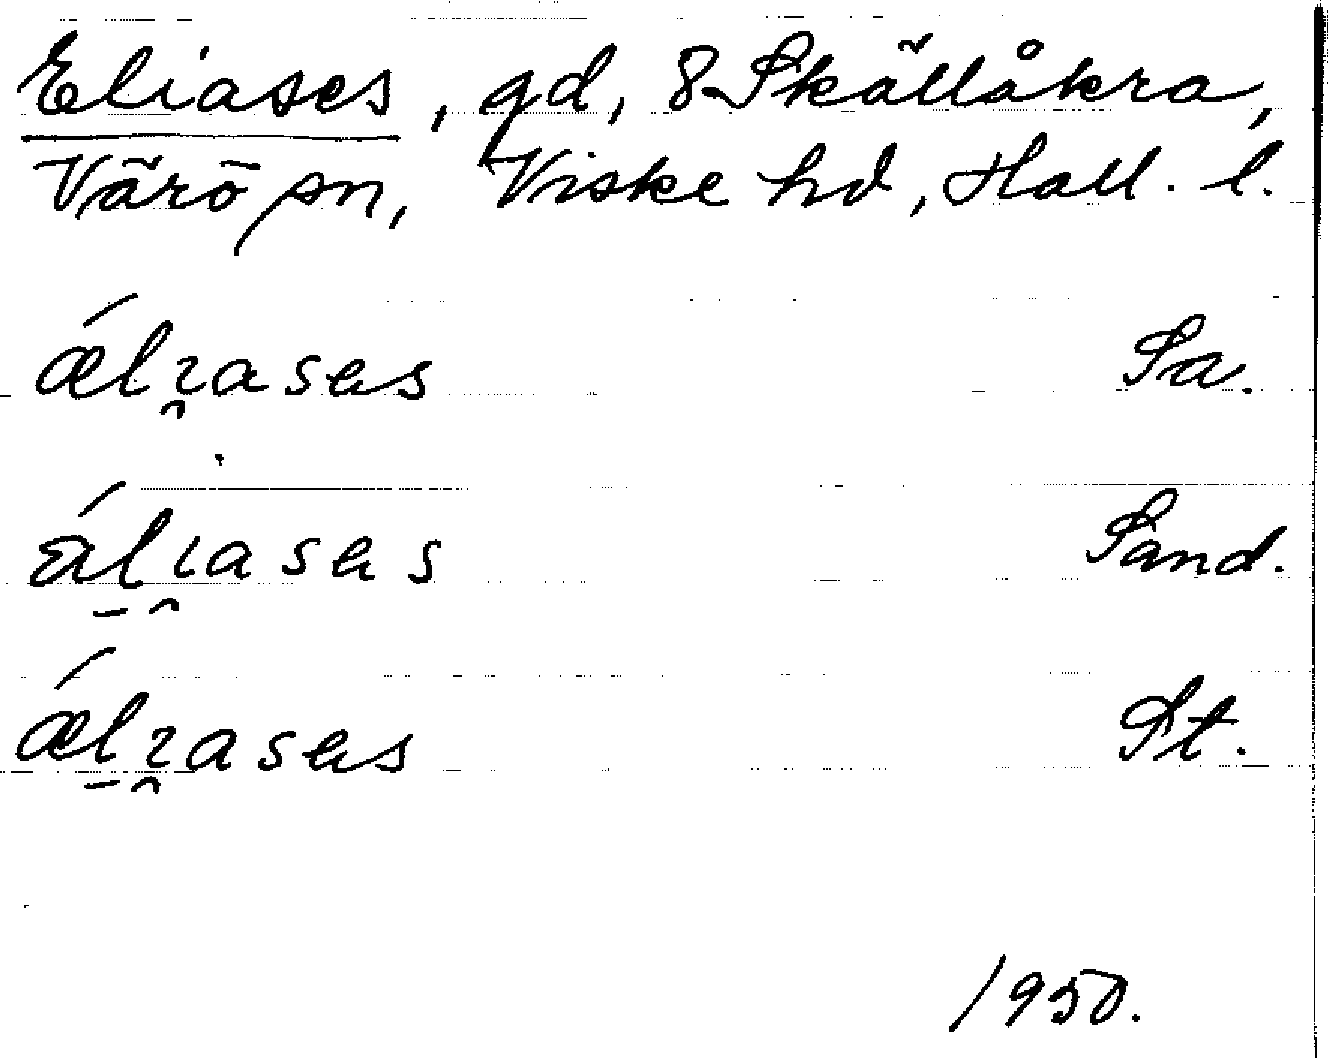 Eliases, gd, 8 Skällåkra,
Värö sn, Viske hd, Hall. l.
ǽlɿ̯asəs Sa.
ǽl̠ɩ̯asəs Sand.
ǽl̠ɿ̯asəs St.
1950.